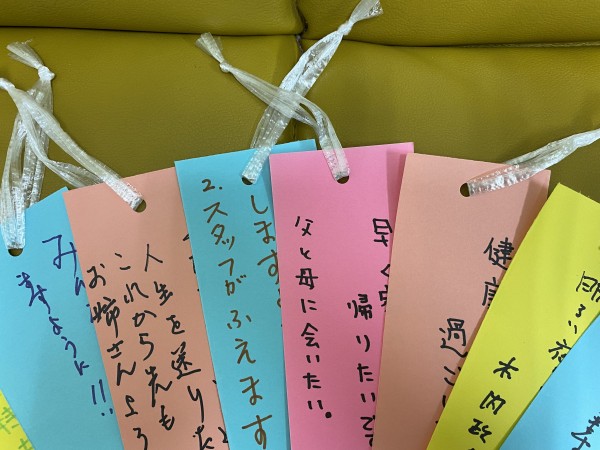 みん
ますように!!
人生を送りた
これから先も
お姉さんよろ
します
2.スタッフがふえます
早く
帰りたいです
父と母に会いたい。
健康
過ごし
明るい
木内政